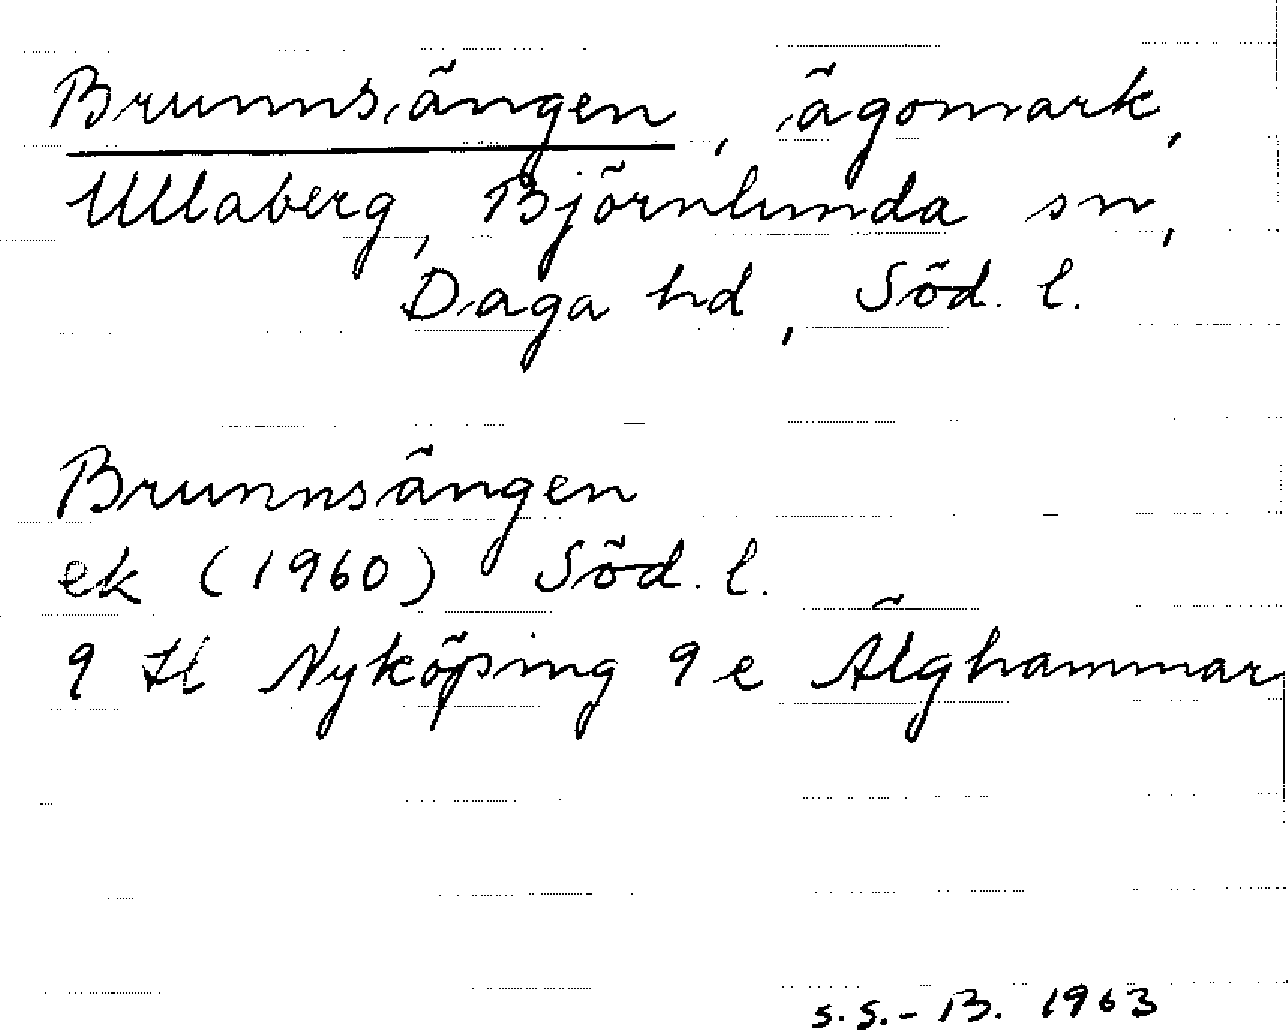 Brunnsängen, ägomark,
Ullaberg, Björnlunda sn,
Daga hd, Söd. l.
Brunnsängen
ek (1960) Söd. l.
9 H Nyköping 9 e Älghammar
S.S.-B. 1963